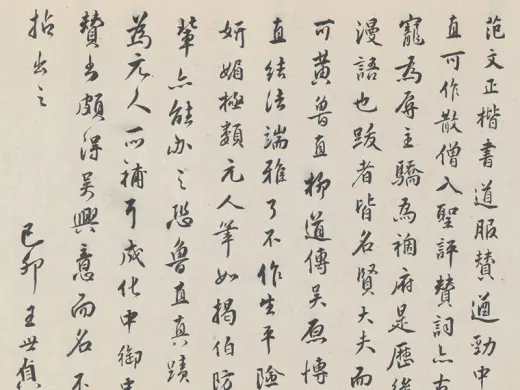 范文正楷書道服贊遒勁中
直可作散僧入聖評贊詞亦古
寵為辱主驕為禍府是歷
漫語也跋者皆名賢大夫而
可黃魯直柳道傳吳原博
直結法端雅了不作生平險
妍媚極類元人筆如揭伯防
輩亦能辦之恐魯直真蹟
為元人所補耳成化中御史
贊書頗得吳興意而名不
拈出之 己卯王世貞